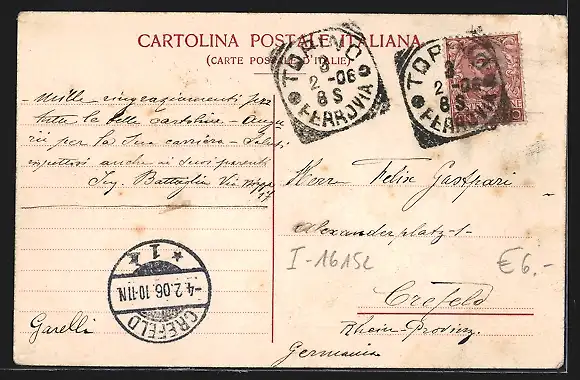 CARTOLINA POSTALE ITALIANA
(CARTE POSTALE D'ITALIE)
TORINO
3
2 -06
8S
FERROVIA
TORINO
3
2 -06
8S
FERROVIA
Mille ringraziamenti per
tutte le belle cartoline - Augu
rii per la Sua carriera - Saluti
rispettosi anche ai Suoi parenti
Ing. Battaglia Via
17
Herrn Felix Gastpari
Alexanderplatz 1
I-1615c
€6.-
Crefeld
Rhein-Provinz.
Germania
CREFELD
-4.2.06.10-11N.
* 1 *
Garelli